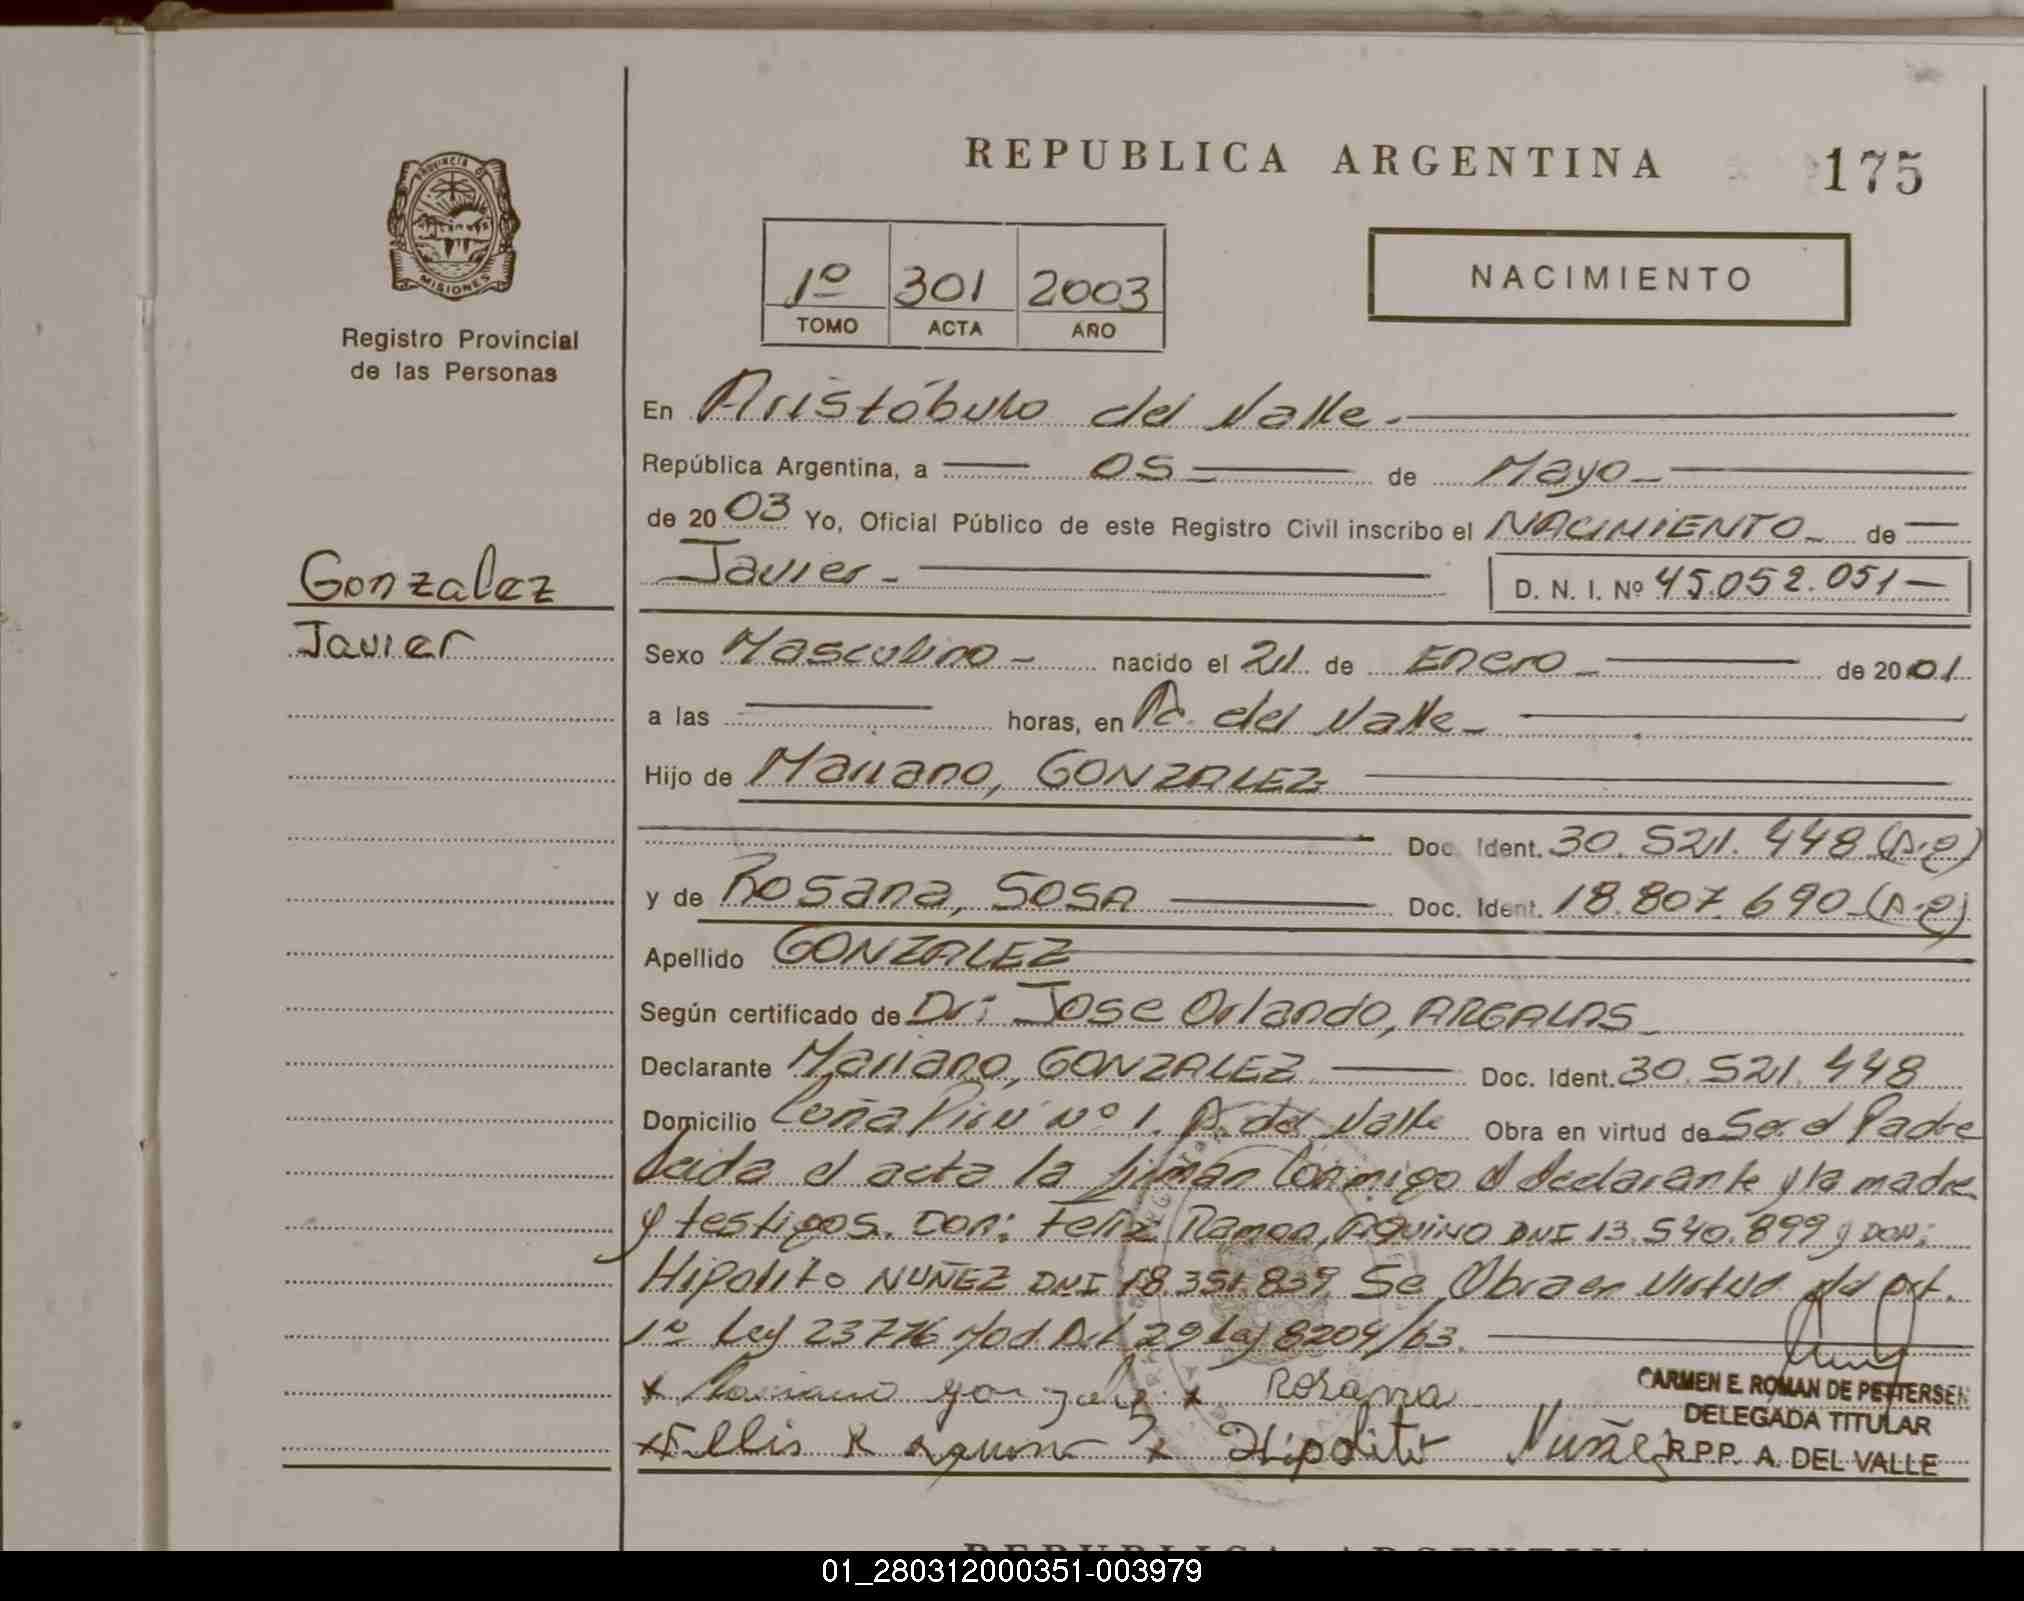 REPUBLICA ARGENTINA
175
PROVINCIA DE
MISIONES
Registro Provincial
de las Personas
1º 301 2003
TOMO ACTA AÑO
NACIMIENTO
En Aristóbulo del Valle.
República Argentina, a 05 de Mayo
de 2003 Yo, Oficial Público de este Registro Civil inscribo el NACIMIENTO de
Javier D. N. I. Nº 45.052.051
Gonzalez
Javier
Sexo Masculino nacido el 21 de Enero de 2001
a las horas, en A. del Valle
Hijo de Mariano, GONZALEZ
Doc. Ident. 30.521.448 (A.C)
y de Rosana, SOSA Doc. Ident. 18.807.690 (A.C)
Apellido GONZALEZ
Según certificado de Dr: Jose Orlando, ARGALAS
Declarante Mariano, GONZALEZ Doc. Ident. 30.521.448
Domicilio Cuña Pirú Nº 1. A. del Valle Obra en virtud de Ser el Padre
Leida el acta la firman Conmigo el declarante y la madre
y testigos. DON: Feliz Ramon, AQUINO DNI 13.540.899 y DON:
Hipolito NUÑEZ DNI 18.351.839. Se Obra en Virtud del Art.
1º Ley 23776 Mod. Art 29 Ley 8204/63.
x Mariano gonzalez x Rosana
x R aquino x Hipolito Nuñez
CARMEN E. ROMAN DE PETTERSEN
DELEGADA TITULAR
R.P.P. A. DEL VALLE
REPUBLICA ARGENTINA
01_280312000351-003979